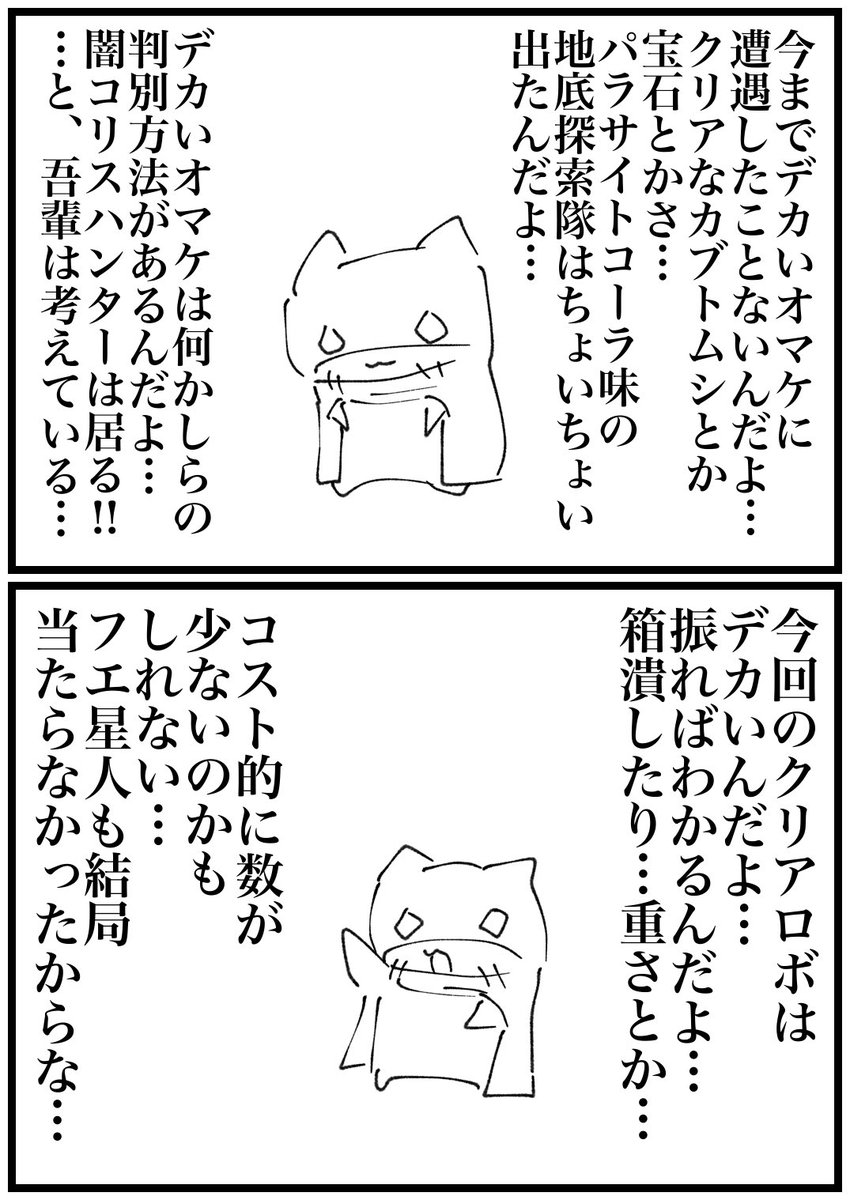 今までデカいオマケに
遭遇したことないんだよ…
クリアなカブトムシとか
宝石とかさ…
パラサイトコーラ味の
地底探索隊はちょいちょい
出たんだよ…
デカいオマケは何かしらの
判別方法があるんだよ…
闇コリスハンターは居る!!
…と、吾輩は考えている…
今回のクリアロボは
デカいんだよ…
振ればわかるんだよ…
箱潰したり…重さとか…
コスト的に数が
少ないのかも
しれない…
フエ星人も結局
当たらなかったからな…